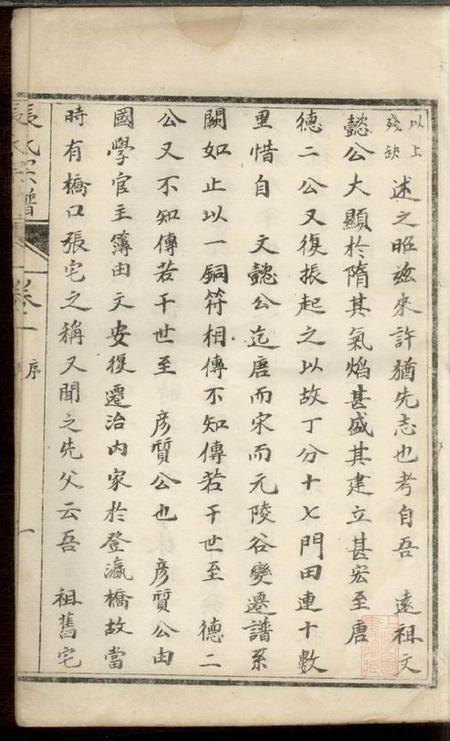 以上殘缺
述之昭兹來許猶先志也考自吾 遠祖文
懿公大顯於隋其氣焰甚盛其建立甚宏至唐
德二公又復振起之以故丁分十七門田連十數
里惜自 文懿公迄唐而宋而元陵谷變遷譜系
闕如止以一銅符相傳不知傳若干世至 德二
公又不知傳若干世至 彦質公也 彦質公由
國學官主簿由文安復遷治内家於登瀛橋故當
時有橋口張宅之稱又聞之先父云吾 祖舊宅
張氏宗譜
卷一
序
一